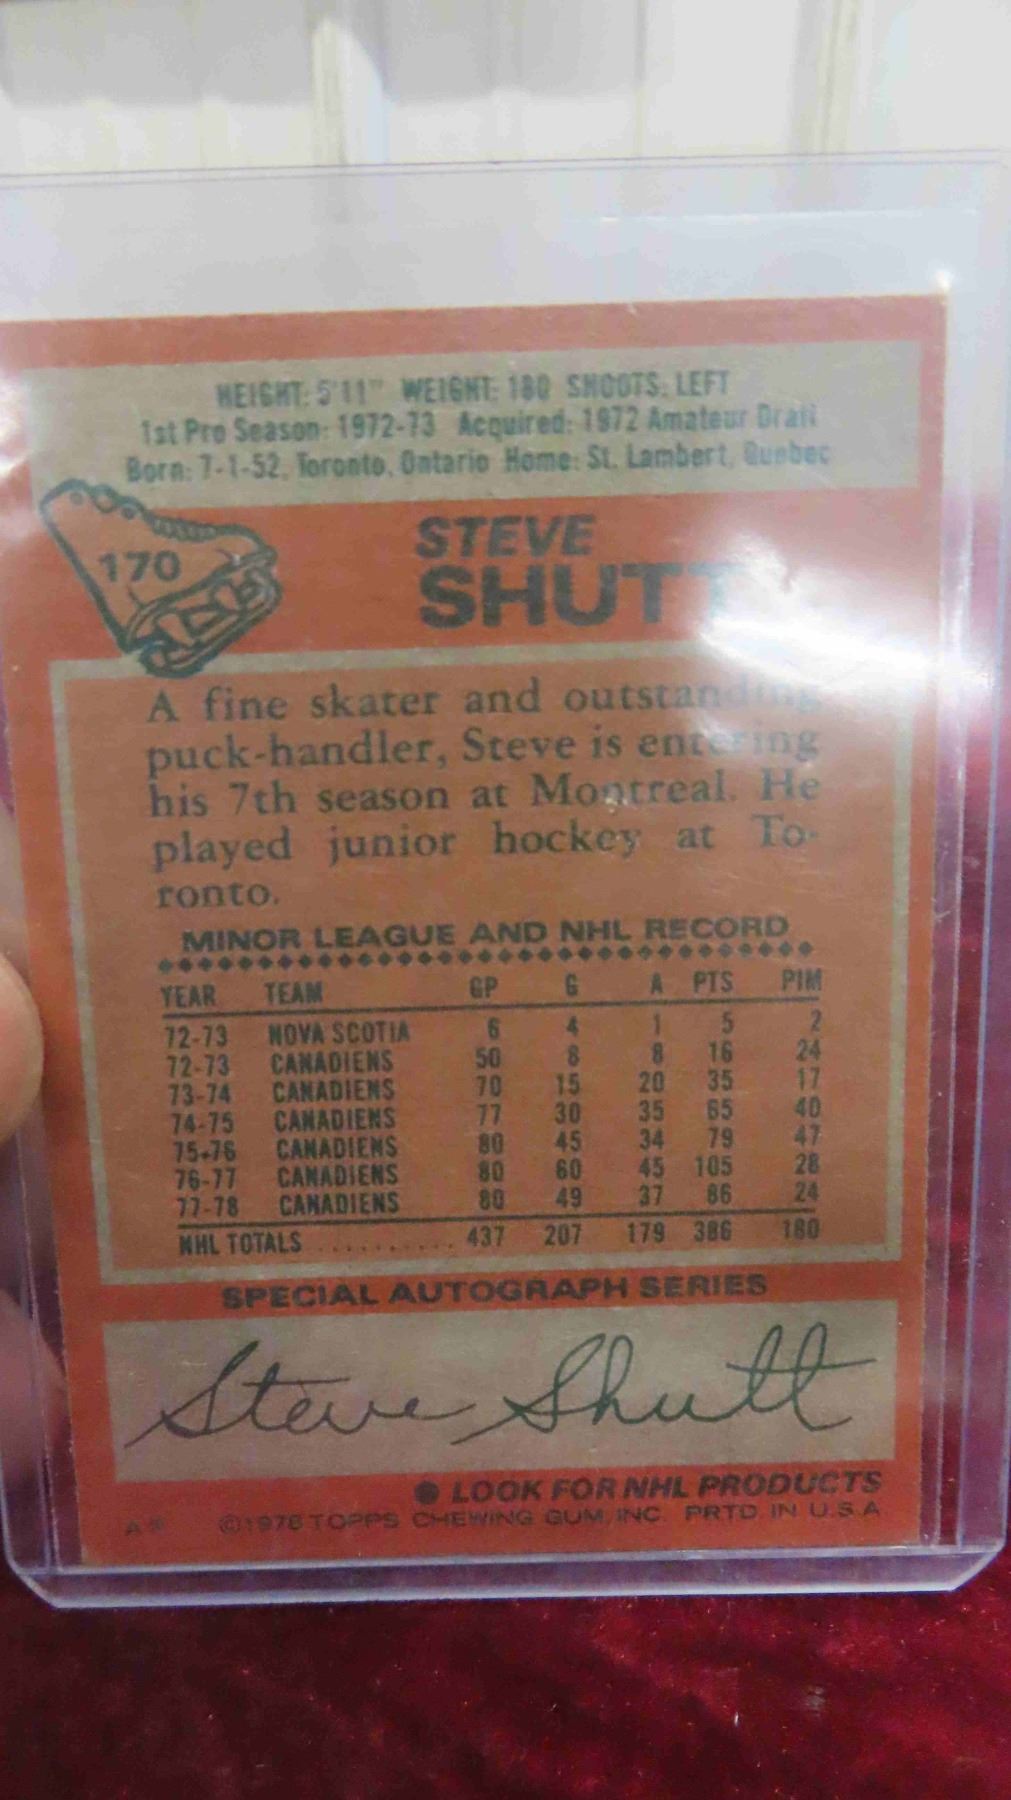 HEIGHT: 5'11" WEIGHT: 180 SHOOTS: LEFT
1st Pro Season: 1972-73 Acquired: 1972 Amateur Draft
Born: 7-1-52, Toronto, Ontario Home: St. Lambert, Quebec
170
STEVE
SHUTT
A fine skater and outstanding
puck-handler, Steve is entering
his 7th season at Montreal. He
played junior hockey at To-
ronto.
MINOR LEAGUE AND NHL RECORD
YEAR TEAM GP G A PTS PIM
72-73 NOVA SCOTIA 6 4 1 5 2
72-73 CANADIENS 50 8 8 16 24
73-74 CANADIENS 70 15 20 35 17
74-75 CANADIENS 77 30 35 65 40
75-76 CANADIENS 80 45 34 79 47
76-77 CANADIENS 80 60 45 105 28
77-78 CANADIENS 80 49 37 86 24
NHL TOTALS .......... 437 207 179 386 180
SPECIAL AUTOGRAPH SERIES
Steve Shutt
● LOOK FOR NHL PRODUCTS
A* ©1978 TOPPS CHEWING GUM, INC. PRTD. IN U.S.A.